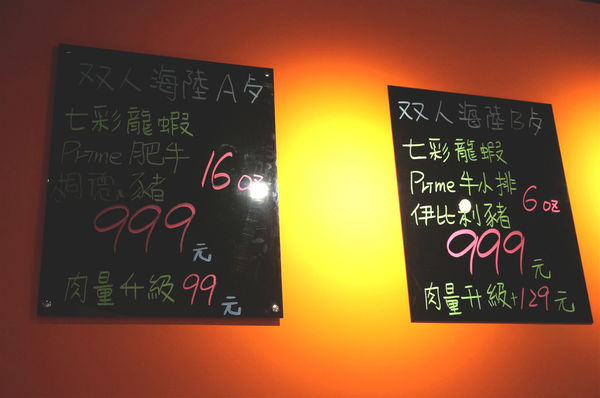 双人海陸A夕
七彩龍蝦
Prime肥牛
姆德豬 16oz
999元
肉量升級99元
双人海陸B夕
七彩龍蝦
Prime牛小排
伊比利豬 6oz
999元
肉量升級+129元